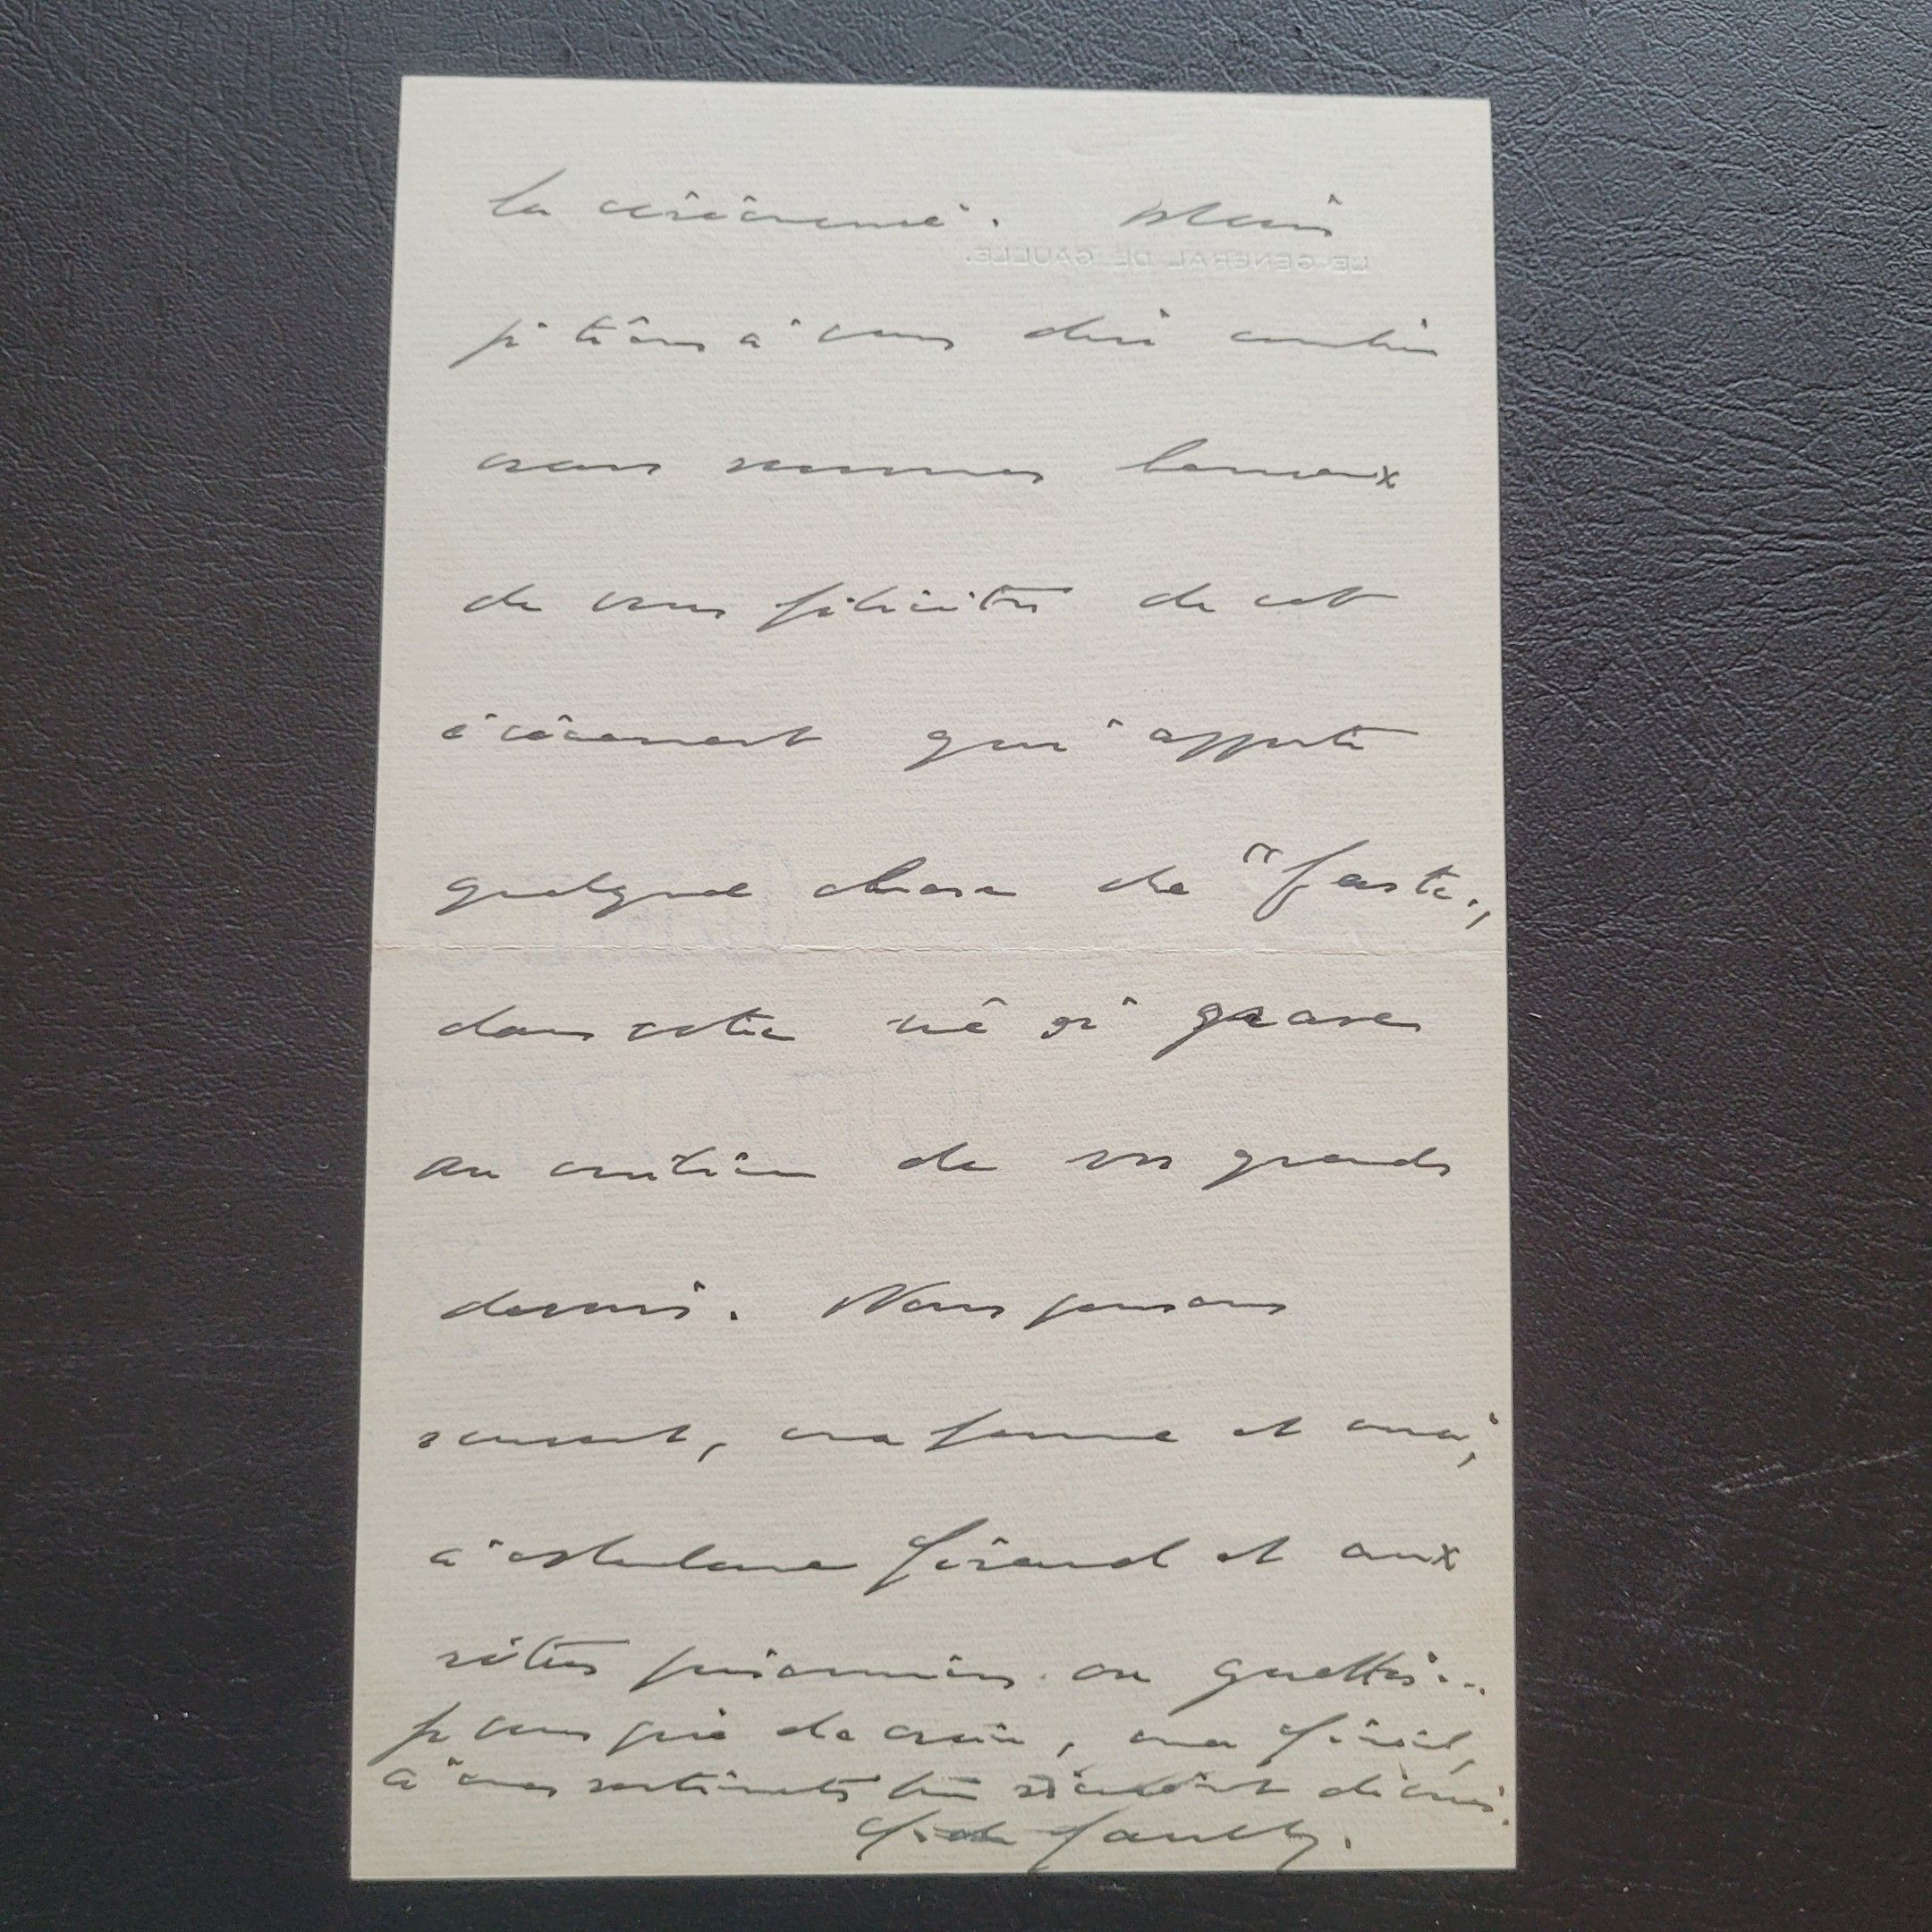 la cérémonie. Mais
LE GENERAL DE GAULLE.
je tiens à vous dire combien
nous sommes heureux
de vous féliciter de cet
événement qui apporte
quelque chose de "faste",
dans votre vie si grave
au milieu de vos grands
devoirs. Nous pensons
souvent, ma femme et moi,
à Madame Giraud et aux
vôtres prisonniers ou guettés...
Je vous prie de croire, mon Général,
à mes sentiments bien dévoués.
C. de Gaulle.